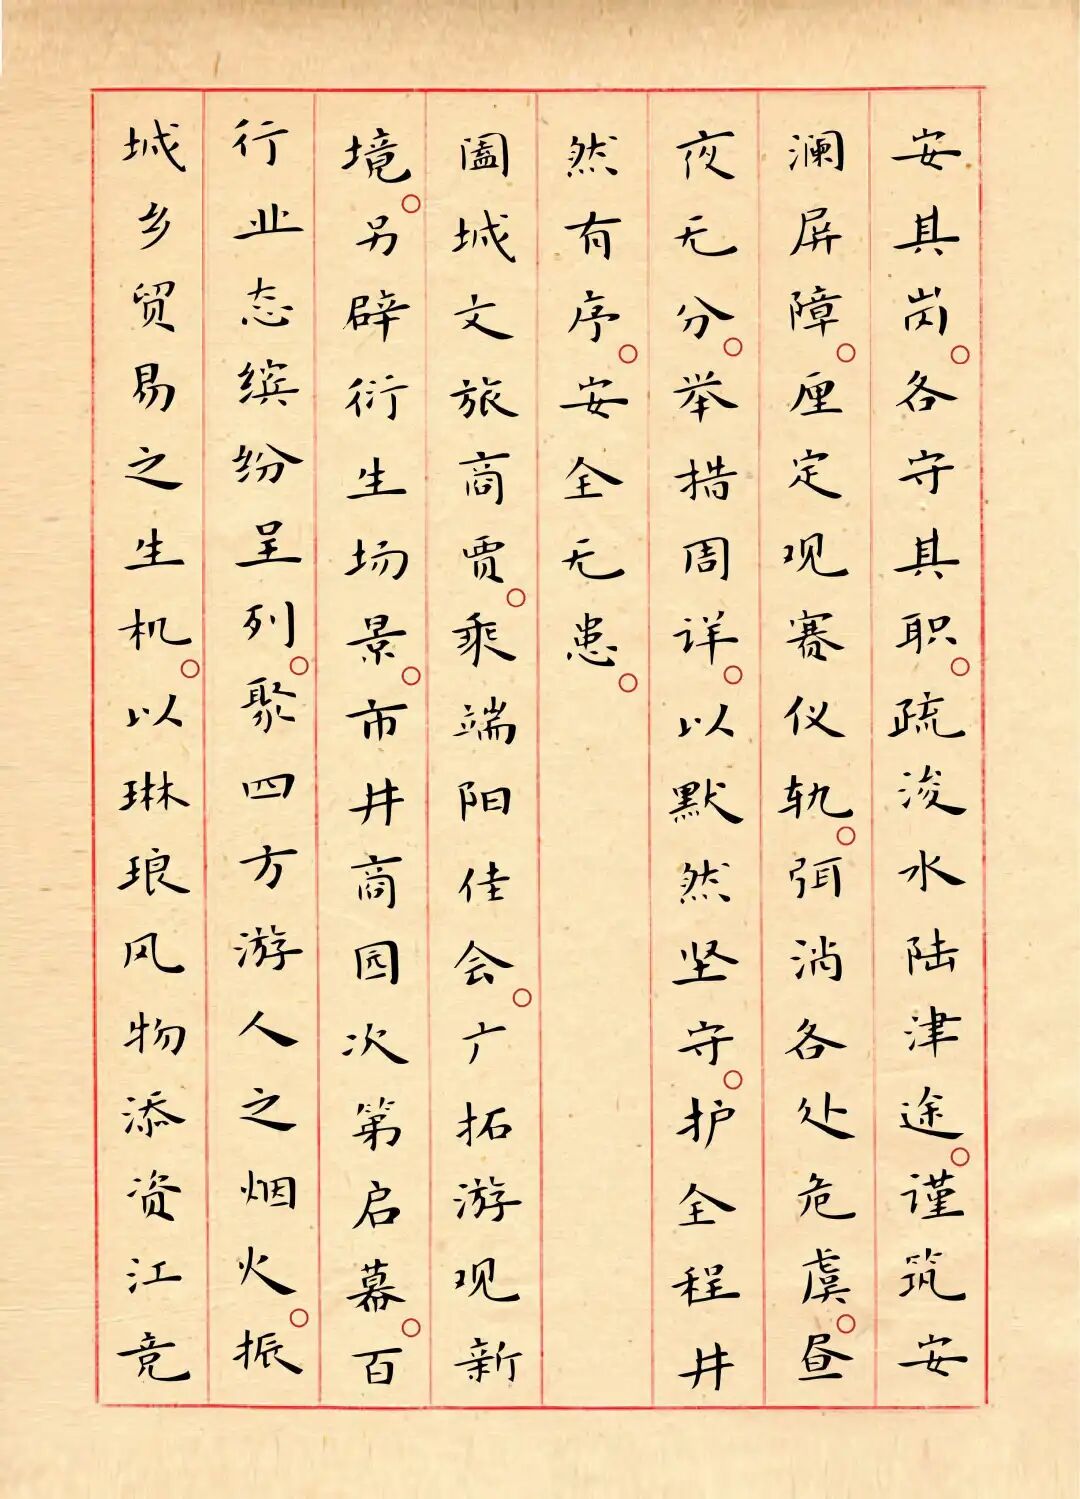 安其岗。各守其职。疏浚水陆津途。谨筑安
澜屏障。厘定观赛仪轨。弭淌各处危虞。昼
夜无分。举措周详。以默然坚守。护全程井
然有序。安全无患。
阖城文旅商贾。乘端阳佳会。广拓游观新
境。另辟衍生场景。市井商园次第启幕。百
行业态缤纷呈列。聚四方游人之烟火。振
城乡贸易之生机。以琳琅风物添资江竞